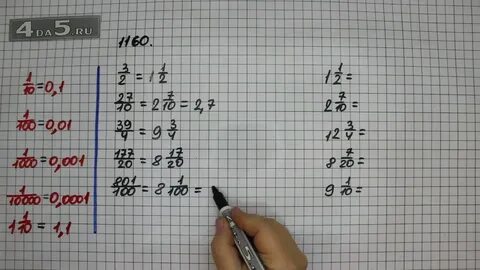 4DA5.RU
1160.
1/10 = 0,1
1/100 = 0,01
1/1000 = 0,001
1/10000 = 0,0001
1 1/10 = 1,1
3/2 = 1 1/2
27/10 = 2 7/10 = 2,7
39/4 = 9 3/4
177/20 = 8 17/20
801/100 = 8 1/100 =
1 1/2 =
2 7/10 =
12 3/4 =
8 7/20 =
9 1/10 =